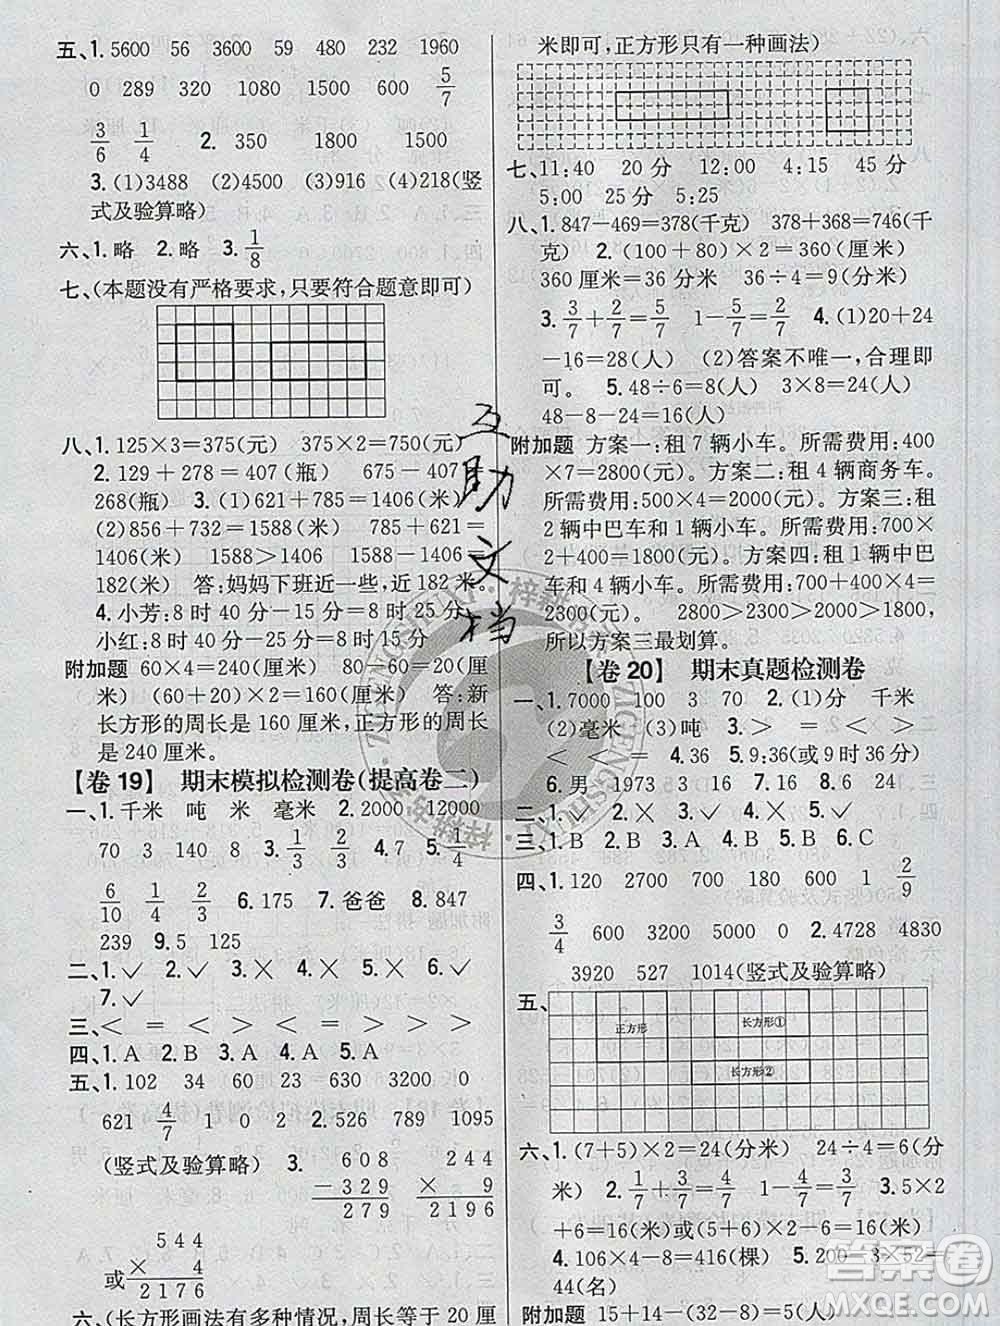 五、1. 5600 56 3600 280 540 232 1960
0 289 320 1080 1500 600 5/7
3/6 1/4 2. 350 1800 1500
3. (1)3488 (2)4500 (3)916 (4)218(竖
式及验算略)
六、1. 略 2. 略 3. 1/8
七、(本题没有严格要求,只要符合题意即可)
八、1. 125×3=375(元) 375×2=750(元)
2. 129+278=407(瓶) 675-407=
268(瓶) 3. (1)621+785=1406(米)
(2)856+732=1588(米) 785+621=
1406(米) 1588>1406 1588-1406=
182(米) 答:妈妈下班近一些,近182米。
4. 小芳:8时40分-15分=8时25分
小红:8时40分-25分=8时15分
附加题 60×4=240(厘米) 80-60=20(厘
米) (60+20)×2=160(厘米) 答:新
长方形的周长是160厘米,正方形的周长
是240厘米。
【卷19】 期末模拟检测卷(提高卷二)
一、1. 千米 吨 米 毫米 2. 2000 12000
70 3 140 8 3. 1/3 2/3 4. 7 5. 1/4
6/10 1/4 2/3 6. 175 7. 爸爸 8. 847
239 9. 5 125
二、1. ✓ 2. ✓ 3. × 4. ✓ 5. × 6. ✓
7. ✓
三、< = < > < > <
四、1. A 2. B 3. A 4. C 5. A
五、1. 102 34 60 23 630 3200 0
621 4/7 1 0 2 2. 526 789 1095
(竖式及验算略) 3. 608 244
-329 × 9
279 2196
544
或 × 4
2176
六、(长方形画法有多种情况,周长等于20厘
米即可,正方形只有一种画法)
七、11:40 20分 12:00 4:15 45分
5:00 25分 5:25
八、1. 847-469=378(千克) 378+368=746(千
克) 2. (100+80)×2=360(厘米)
360厘米=36分米 36>34 能
3. 3/7+2/7=5/7 1-5/7=2/7 4. (1)20+24
-16=28(人) (2)答案不唯一,合理即
可。 5. 48÷6=8(人) 3×8=24(人)
48-8-24=16(人)
附加题 方案一:租7辆小车。所需费用:400
×7=2800(元)。方案二:租4辆商务车。
所需费用:500×4=2000(元)。方案三:租
2辆中巴车和1辆小车。所需费用:700
×2+400=1800(元)。方案四:租1辆中巴
车和4辆小车。所需费用:700+400×4=
2300(元)。 2800>2300>2000>1800,
所以方案三最划算。
【卷20】 期末真题检测卷
一、1. 7000 100 3 70 2. (1)分米 千米
(2)毫米 (3)吨 3. > > = < >
< < = 4. 36 5. 9时36(分)
6. 男 1973 3 13 7. 15 16
二、1. × 2. ✓ 3. ✓ 4. × 5. ×
三、1. B 2. A 3. B 4. C 5. B
四、1. 120 2700 700 180 600 1 2/9
3/4 600 3200 5000 0 2. 4728 4830
3920 527 1014(竖式及验算略)
五、
正方形
长方形①
长方形②
六、1. (7+5)×2=24(分米) 24÷4=6(分
米) 2. 1/7+3/7=4/7 1-4/7=3/7 3. 5×2
+6=16(米)或(5+6)×2-6=16(米)
4. 106×4-8=416(棵) 5. 200-3×52=
44(名)
附加题 15+14-(32-8)=5(人)
互助文档
答案圈
MXQE.COM